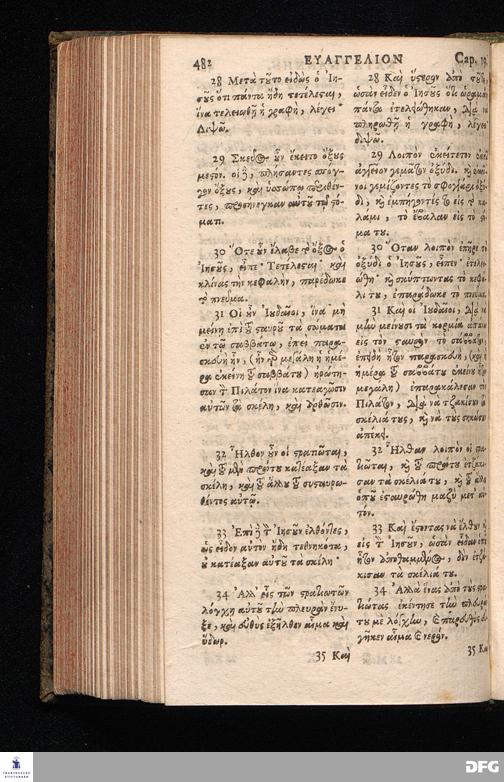 482 ΕΥΑΓΓΕΛΙΟΝ Cap. 19.
28 Μετὰ τῦτο εἰδὼς ὁ Ἰη-
σῦς ὅτι πάντα ἤδη τετέλεσται,
ἵνα τελειωθῇ ἡ γραφὴ, λέγει·
Διψῶ.
29 Σκεῦος ὖν ἔκειτο ὄξυς
μεστόν. οἱ δὲ, πλήσαντες σπόγ-
γον ὄξυς, καὶ ὑσσώπῳ περιθέν-
τες, προσήνεγκαν αὐτῦ τῷ στό-
ματι.
30 Ὅτε ὖν ἔλαβε τὸ ὄξος ὁ
Ἰησῦς, εἶπε· Τετέλεσται· καὶ
κλίνας τὴν κεφαλὴν, παρέδωκε
τὸ πνεῦμα.
31 Οἱ ὖν Ἰυδαῖοι, ἵνα μὴ
μείνῃ ἐπὶ τῦ σταυρῦ τὰ σώματα
ἐν τῷ σαββάτῳ, ἐπεὶ παρα-
σκευὴ ἦν, (ἦν γὸ μεγάλη ἡ ἡμέ-
ρα ἐκείνη τῦ σαββάτυ) ἠρώτη-
σαν τὸν Πιλάτον ἵνα κατεαγῶσιν
αὐτῶν τὰ σκέλη, καὶ ἀρθῶσιν.
32 Ἦλθον ὖν οἱ στρατιῶται,
καὶ τῦ μὲν πρώτυ κατέαξαν τὰ
σκέλη, καὶ τῦ ἄλλυ τῦ συσταυρω-
θέντος αὐτῷ.
33 Ἐπὶ δὲ τὸν Ἰησῦν ἐλθόντες,
ὡς εἶδον αὐτὸν ἤδη τεθνηκότα,
ὐ κατέαξαν αὐτῦ τὰ σκέλη·
34 Ἀλλ' εἷς τῶν στρατιωτῶν
λόγχῃ αὐτῦ τὴν πλευρὰν ἔνυ-
ξε, καὶ εὐθὺς ἐξῆλθεν αἷμα καὶ
ὕδωρ.
35 Καὶ
28 Καὶ ὕστερον ἀπὸ
ὡσὰν εἶδεν ὁ Ἰησῦς
πάντα ἐτελειώθηκαν, διὰ νὰ
πληρωθῇ ἡ γραφὴ, λέγει·
διψῶ.
29 Λοιπὸν ἐκείτετον
ἀγγεῖον γεμάτον ὀξύδι.
νοι γεμίζοντες τὸ σφογγάρι
δι, κ̀ ἐμπήγοντές το εἰς
λάμι, τὸ ἔβαλαν εἰς τὸ
μα τυ.
30 Ὅταν λοιπὸν ἐπῆρε τὸ
ὀξύδι ὁ Ἰησῦς, εἶπεν·
ώθη· κ̀ σκύπτωντας τὸ κεφά-
λι τυ, ἐπαράδωκε τὸ πνεῦμα.
31 Καὶ οἱ Ἰυδαῖοι, διὰ νὰ
μὴν μείνυσι τὰ κορμία
εἰς τὸν σαυρὸν τὸ σάββατον,
ἐπειδὴ ἦτον παρασκευὴ, (καὶ ἡ
ἡμέρα τῦ σαββάτυ ἐκείνη
μεγάλη) ἐπαρακάλεσαν τὸν
Πιλᾶτον, διὰ νὰ τζακίσυν
σκέλιά τυς, κ̀ νὰ τυς σηκώσυν
ἀπεκεῖ.
32 Ἦλθαν λοιπὸν οἱ στρα-
τιῶται, κ̀ τῦ πρώτυ ἐτζάκι-
σαν τὰ σκέλιά τυ, κ̀ τῦ
ὁπῦ ἐσταυρώθη μαζὺ μετ' αὐ-
τόν.
33 Καὶ ἔσοντας νὰ ἐλθυν
εἰς τὸν Ἰησῦν, ὡσὰν εἶδαν
ἦτον ἀποθαμμένος, δὲν ἐτζά-
κισαν τὰ σκέλιά τυ.
34 Ἀλλὰ ἕνας ἀπὸ τυς στρα-
τιώτας ἐκέντησε τὴν πλευράν
τυ μὲ λόγχην, κ̀ παρευθὺς
γῆκεν αἷμα κ̀ νερόν.
35 Και
FRANCKESCHE STIFTUNGEN
DFG